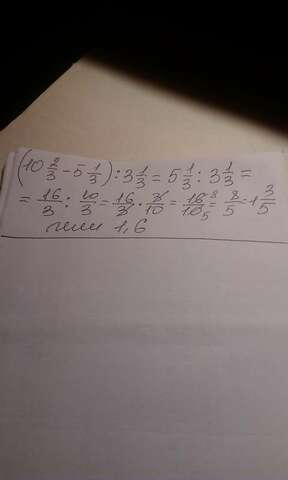 (10 2/3 - 5 1/3) : 3 1/3 = 5 1/3 : 3 1/3 =
= 16/3 : 10/3 = 16/3 · 3/10 = 16/10 8 5 = 8/5 = 1 3/5
или 1,6